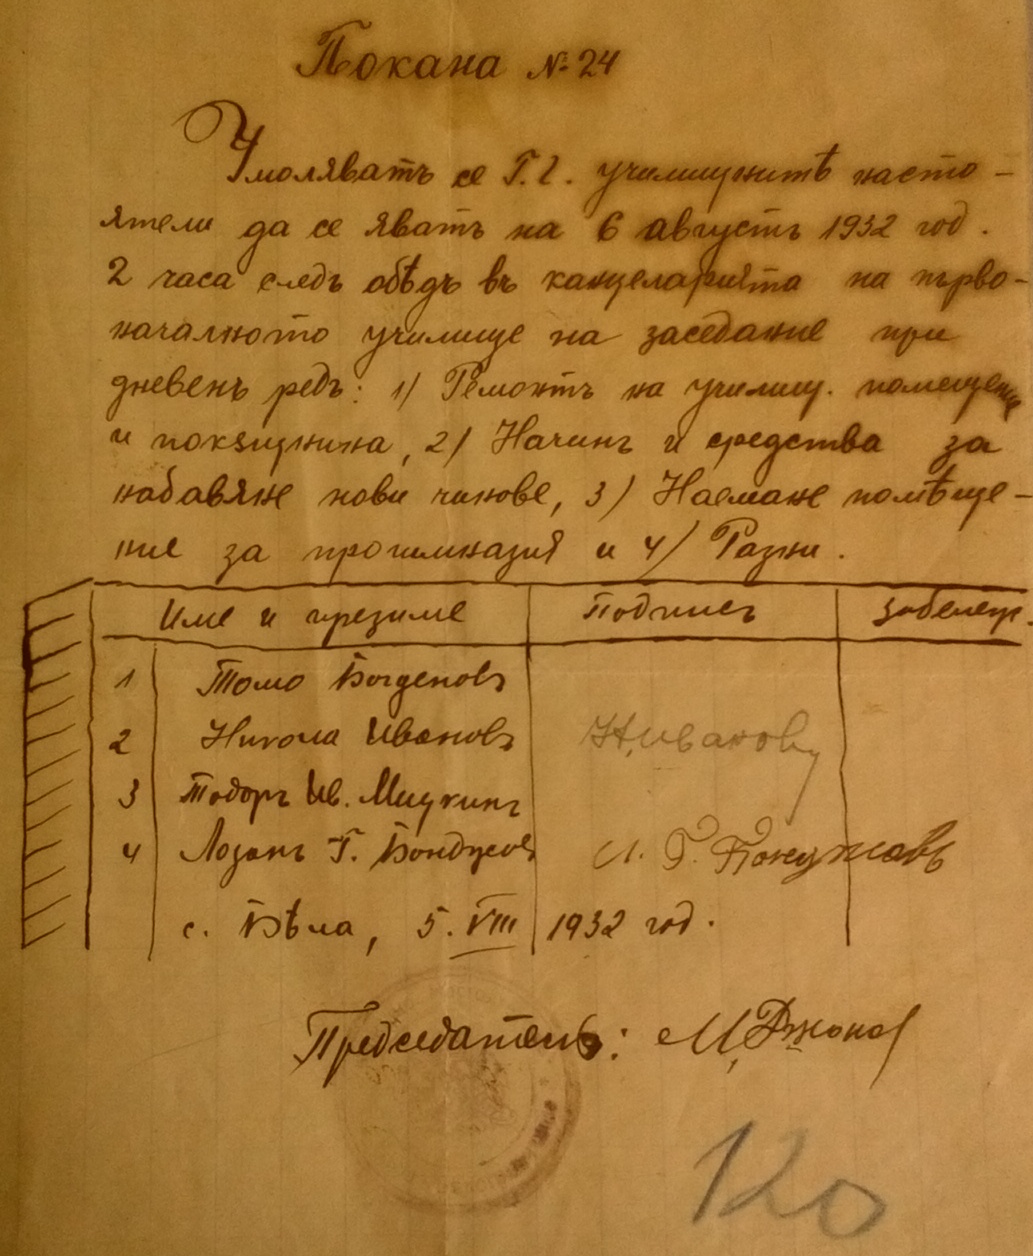 Покана № 24
Умоляватъ се Г. Г. училищнитѣ насто-
ятели да се явятъ на 6 августъ 1932 год.
2 часа следъ обѣдъ въ канцеларията на първо-
началното училище на заседание при
дневенъ редъ: 1) Ремонтъ на училищ. помещения
и покѫщнина, 2) Начинъ и средства за
набавяне нови чинове, 3) Наемане помѣще-
ние за прогимназия и 4) Разни.
Име и презиме Подписъ Забележ.
1 Томо Богдановъ
2 Никола Ивановъ Н. Ивановъ
3 Тодоръ Ив. Мицкинъ
4 Лозанъ Г. Бонджовъ Л. Г. Бонджовъ
с. Бѣла, 5. VIII 1932 год.
Председатель: М. Джонов
120